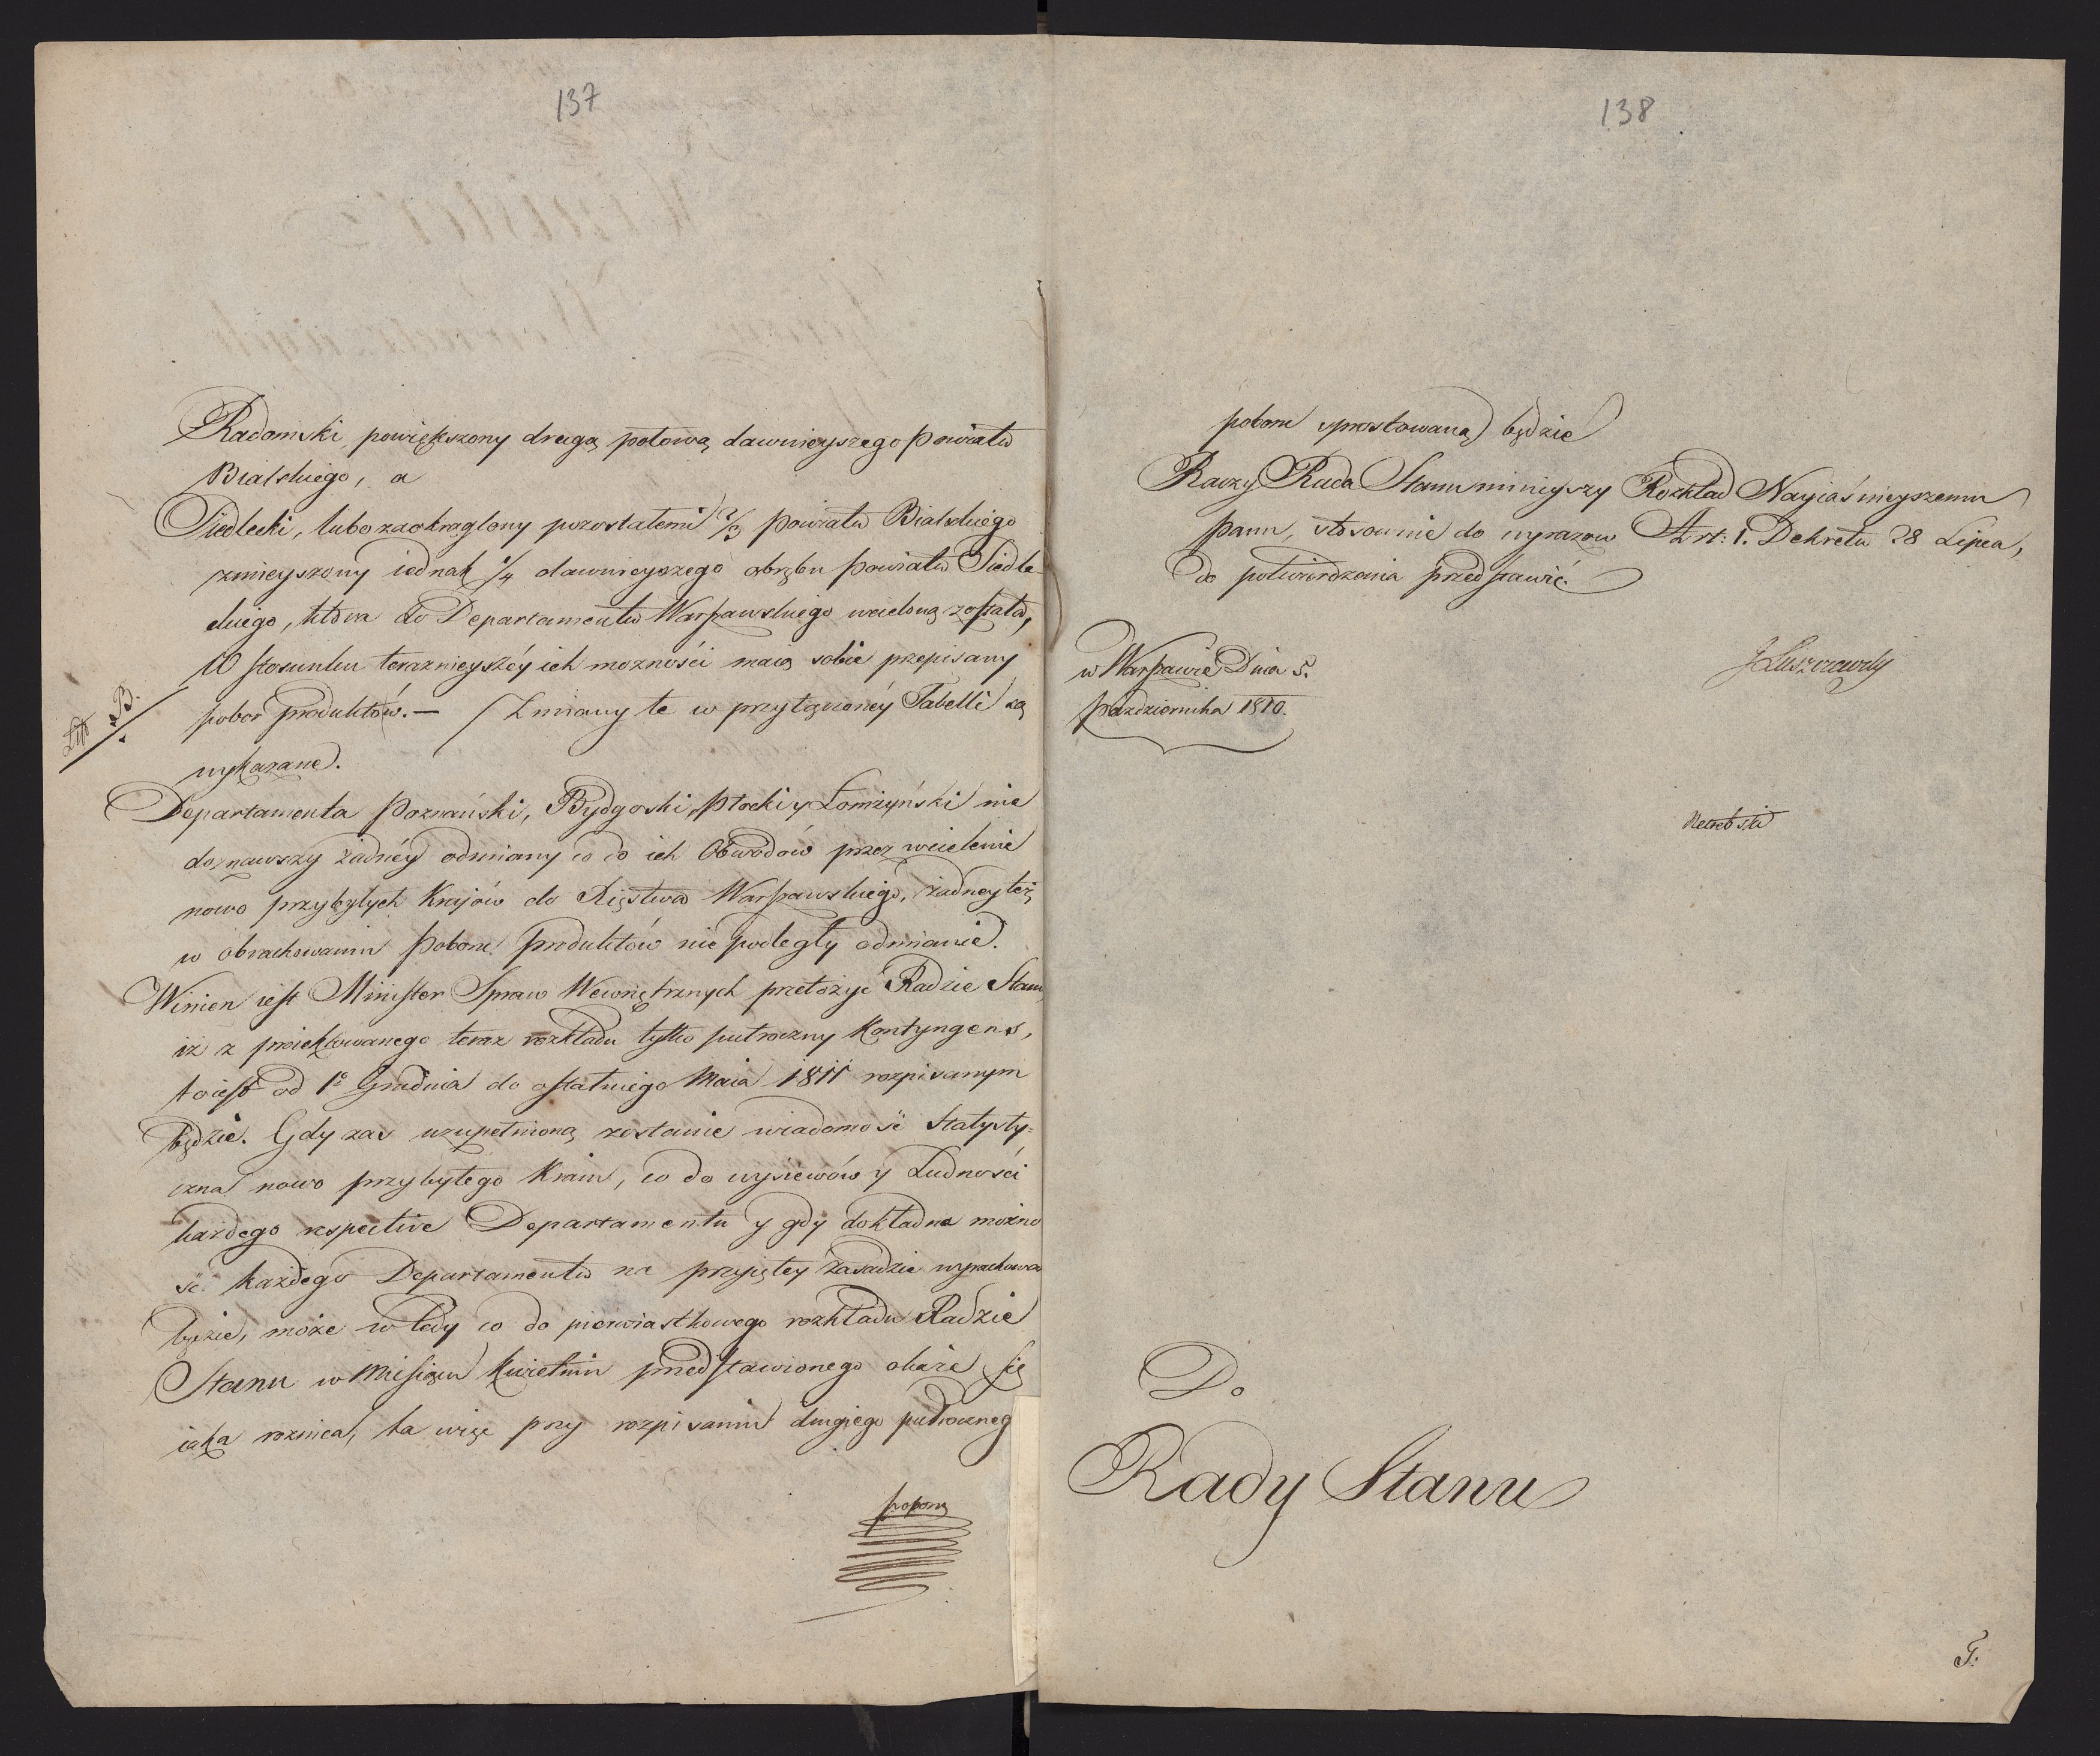 137
Radomski, powiększony drugą połową dawnieyszego Powiatu
Bialskiego, a
Siedlecki, lubo zaokrąglony pozostałemi 2/3 Powiatu Bialskiego
zmieyszony iednak 1/4 dawnieyszego obrębu Powiatu Siedle
ckiego, która do Departamentu Warszawskiego wcieloną została,
W stosunku teraznieyszéy ich możności maią sobie przepisany
Litt B.
pobor produktów. — / Zmiany te w przyłączonéy Tabelli są
wykazane.
Departamenta Poznański, Bydgoski, Płocki y Łomżyński nie
doznawszy żadnéy odmiany co do ich Obwodów przez wcielenie
nowo przybyłych Krajów do Xięstwa Warszawskiego, żadney też
w obrachowaniu Poboru produktów nie podległy odmianie.
Winien iest Minister Spraw Wewnętrznych przełożyć Radzie Stanu
iż z proiektowanego teraz rozkładu tylko pułroczny Kontyngens,
to iest od 1o Grudnia do ostatniego Maia 1811 rozpisanym
będzie. Gdy zaś uzupełnioną zostanie wiadomość Statysty=
czna nowo przybyłego Kraiu, co do wysiewów y Ludności
każdego respective Departamentu y gdy dokładna możno
ść każdego Departamentu na przyiętey zasadzie wyrachowa
będzie, może wtedy co do pierwiastkowego rozkładu Radzie
Stanu w Miesiącu Kwietniu przedstawionego okaże się
iaka roznica, ta więc przy rozpisaniu drugiego pułroczneg
138
poboru sprostowaną będzie
Raczy Rada Stanu ninieyszy Rozkład Nayiaśnieyszemu
Panu, stosownie do wyrazow Art: 1. Dekretu 28 Lipca,
do potwierdzenia przedstawić.
w Warszawie Dnia 5.
Października 1810.
JŁuszczewski
Do
Rady Stanu